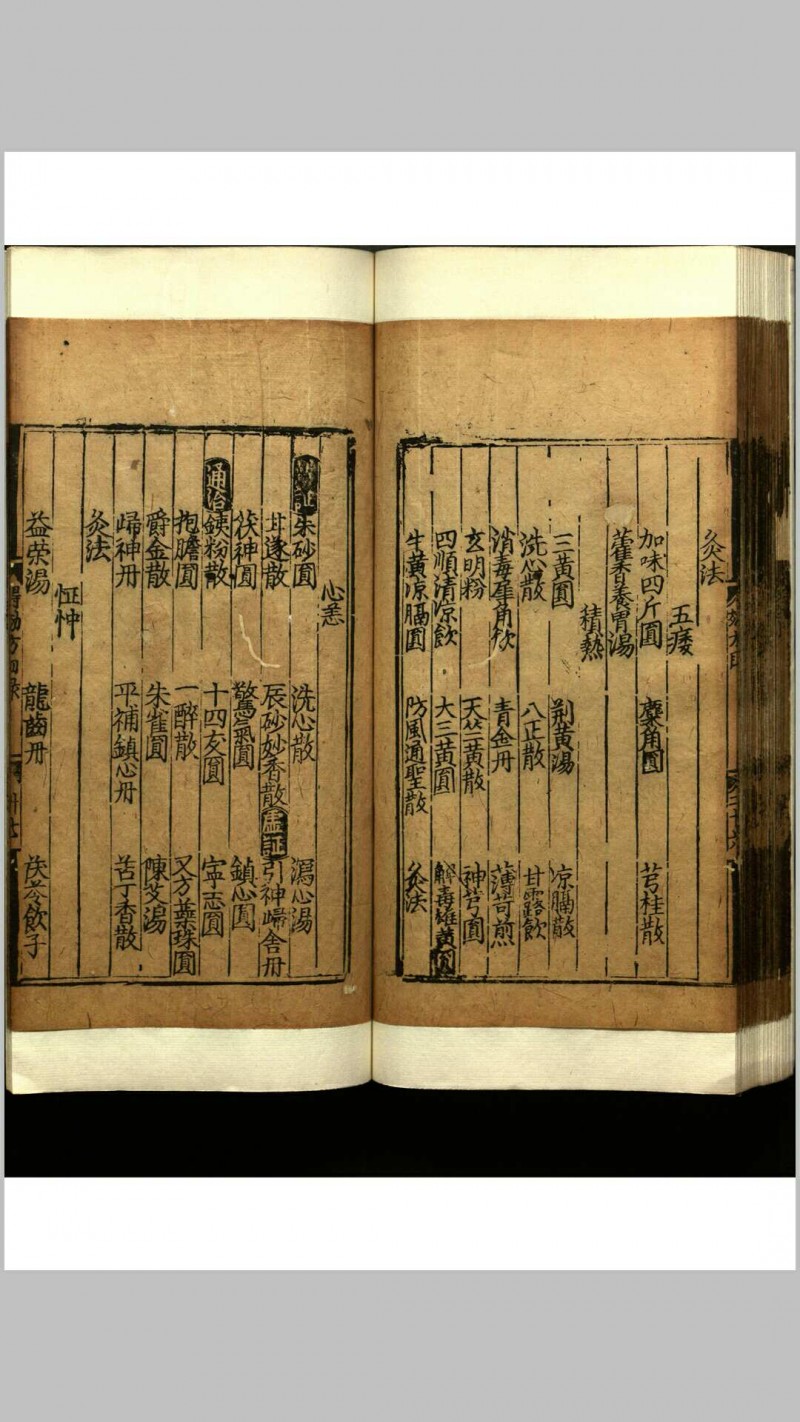 灸法
五痿
加味四斤圓 麋角圓 芎桂散
藿香養胃湯
積熱
三黃圓 荆黃湯 凉膈散
洗心散 八正散 甘露飲
消毒犀角飲 青金丹 薄荷煎
玄明粉 天竺黃散 神芎圓
四順清凉飲 大三黃圓 解毒雄黃圓
牛黃凉膈圓 防風通聖散 灸法
心恙
證 朱砂圓 洗心散 瀉心湯
甘遂散 辰砂妙香散 虛証 引神歸舍丹
茯神圓 驚氣圓 鎮心圓
通治 鐵粉散 十四友圓 寜志圓
抱膽圓 一醉散 又方蘂珠圓
爵金散 朱雀圓 陳艾湯
歸神丹 平補鎮心丹 苦丁香散
灸法
怔忡
益荣湯 龍齒丹 茯苓飲子